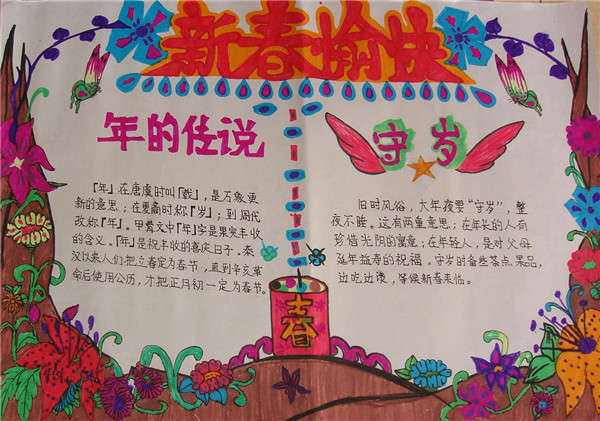 新春愉快
年的传说
『年』在唐虞时叫『载』，是万象更
新的意思；在夏商时称『岁』；到周代
改称『年』。甲骨文中『年』字是果实丰收
的含义。『年』是祝丰收的喜庆日子。秦
汉以来人们把立春定为春节，直到辛亥革
命后使用公历，才把正月初一定为春节。
守岁
旧时风俗，大年夜要“守岁”，整
夜不睡。这有两重意思：在年长的人有
珍惜光阴的寓意；在年轻人，是对父母
延年益寿的祝福。守岁时备些茶点、果品，
边吃边谈，等候新春来临。
春